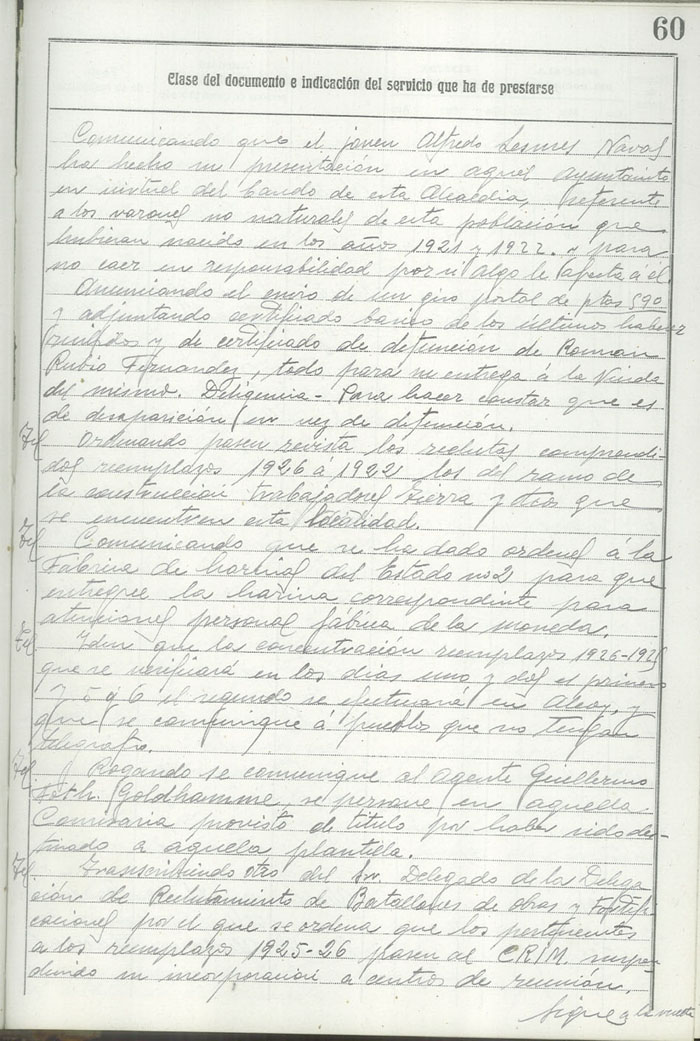 60
Clase del documento e indicación del servicio que ha de prestarse
Comunicando que el joven Alfredo Lesmes Naval
ha hecho su presentación en aquel Ayuntamiento
en virtud del bando de esta Alcaldia, referente
a los varones no naturales de esta población que
hubieran nacido en los años 1921 y 1922. para
no caer en responsabilidad por si algo le afecta á el.
Anunciando el envio de un giro postal de ptas 590
y adjuntando certificado de los últimos haberes
y de certificado de defunción de Roman
Rubio Fernandez, todo para su entrega á la Viuda
del mismo. Diligencia - Para hacer constar que es
de desaparición en vez de defunción.
Tel Ordenando pasen revista los reclutas comprendi-
dos reemplazos 1926 a 1922 los del ramo de
la construccion trabajadores tierra y otros que
se encuentren esta localidad.
Tel Comunicando que se ha dado ordenes á la
Fábrica de harinas del Estado nº 2 para que
entregue la harina correspondiente para
atenciones personal fábrica de la moneda.
Tel Idem que la concentración reemplazos 1926-192
que se verificará en los dias uno y dos es primero
y 5 ó 6 el segundo se efectuará en Alcoy, y
que se comunique á pueblos que no tengan
telegrafo.
Tel Rogando se comunique al Agente Guillermo
Goldhamme, se persone en aquella
Comisaria provisto de titulo por haber sido des-
tinado a aquella plantilla.
Tel Transcribiendo otro del Sr. Delegado de la Delega
ción de Reclutamiento de Batallones de obras y Fortifi
caciones por el que se ordena que los pertenecientes
a los reemplazos 1925-26 pasen al C.R.I.M. suspen
diendo su incorporación a centros de reunión.
Sigue a la vuelta